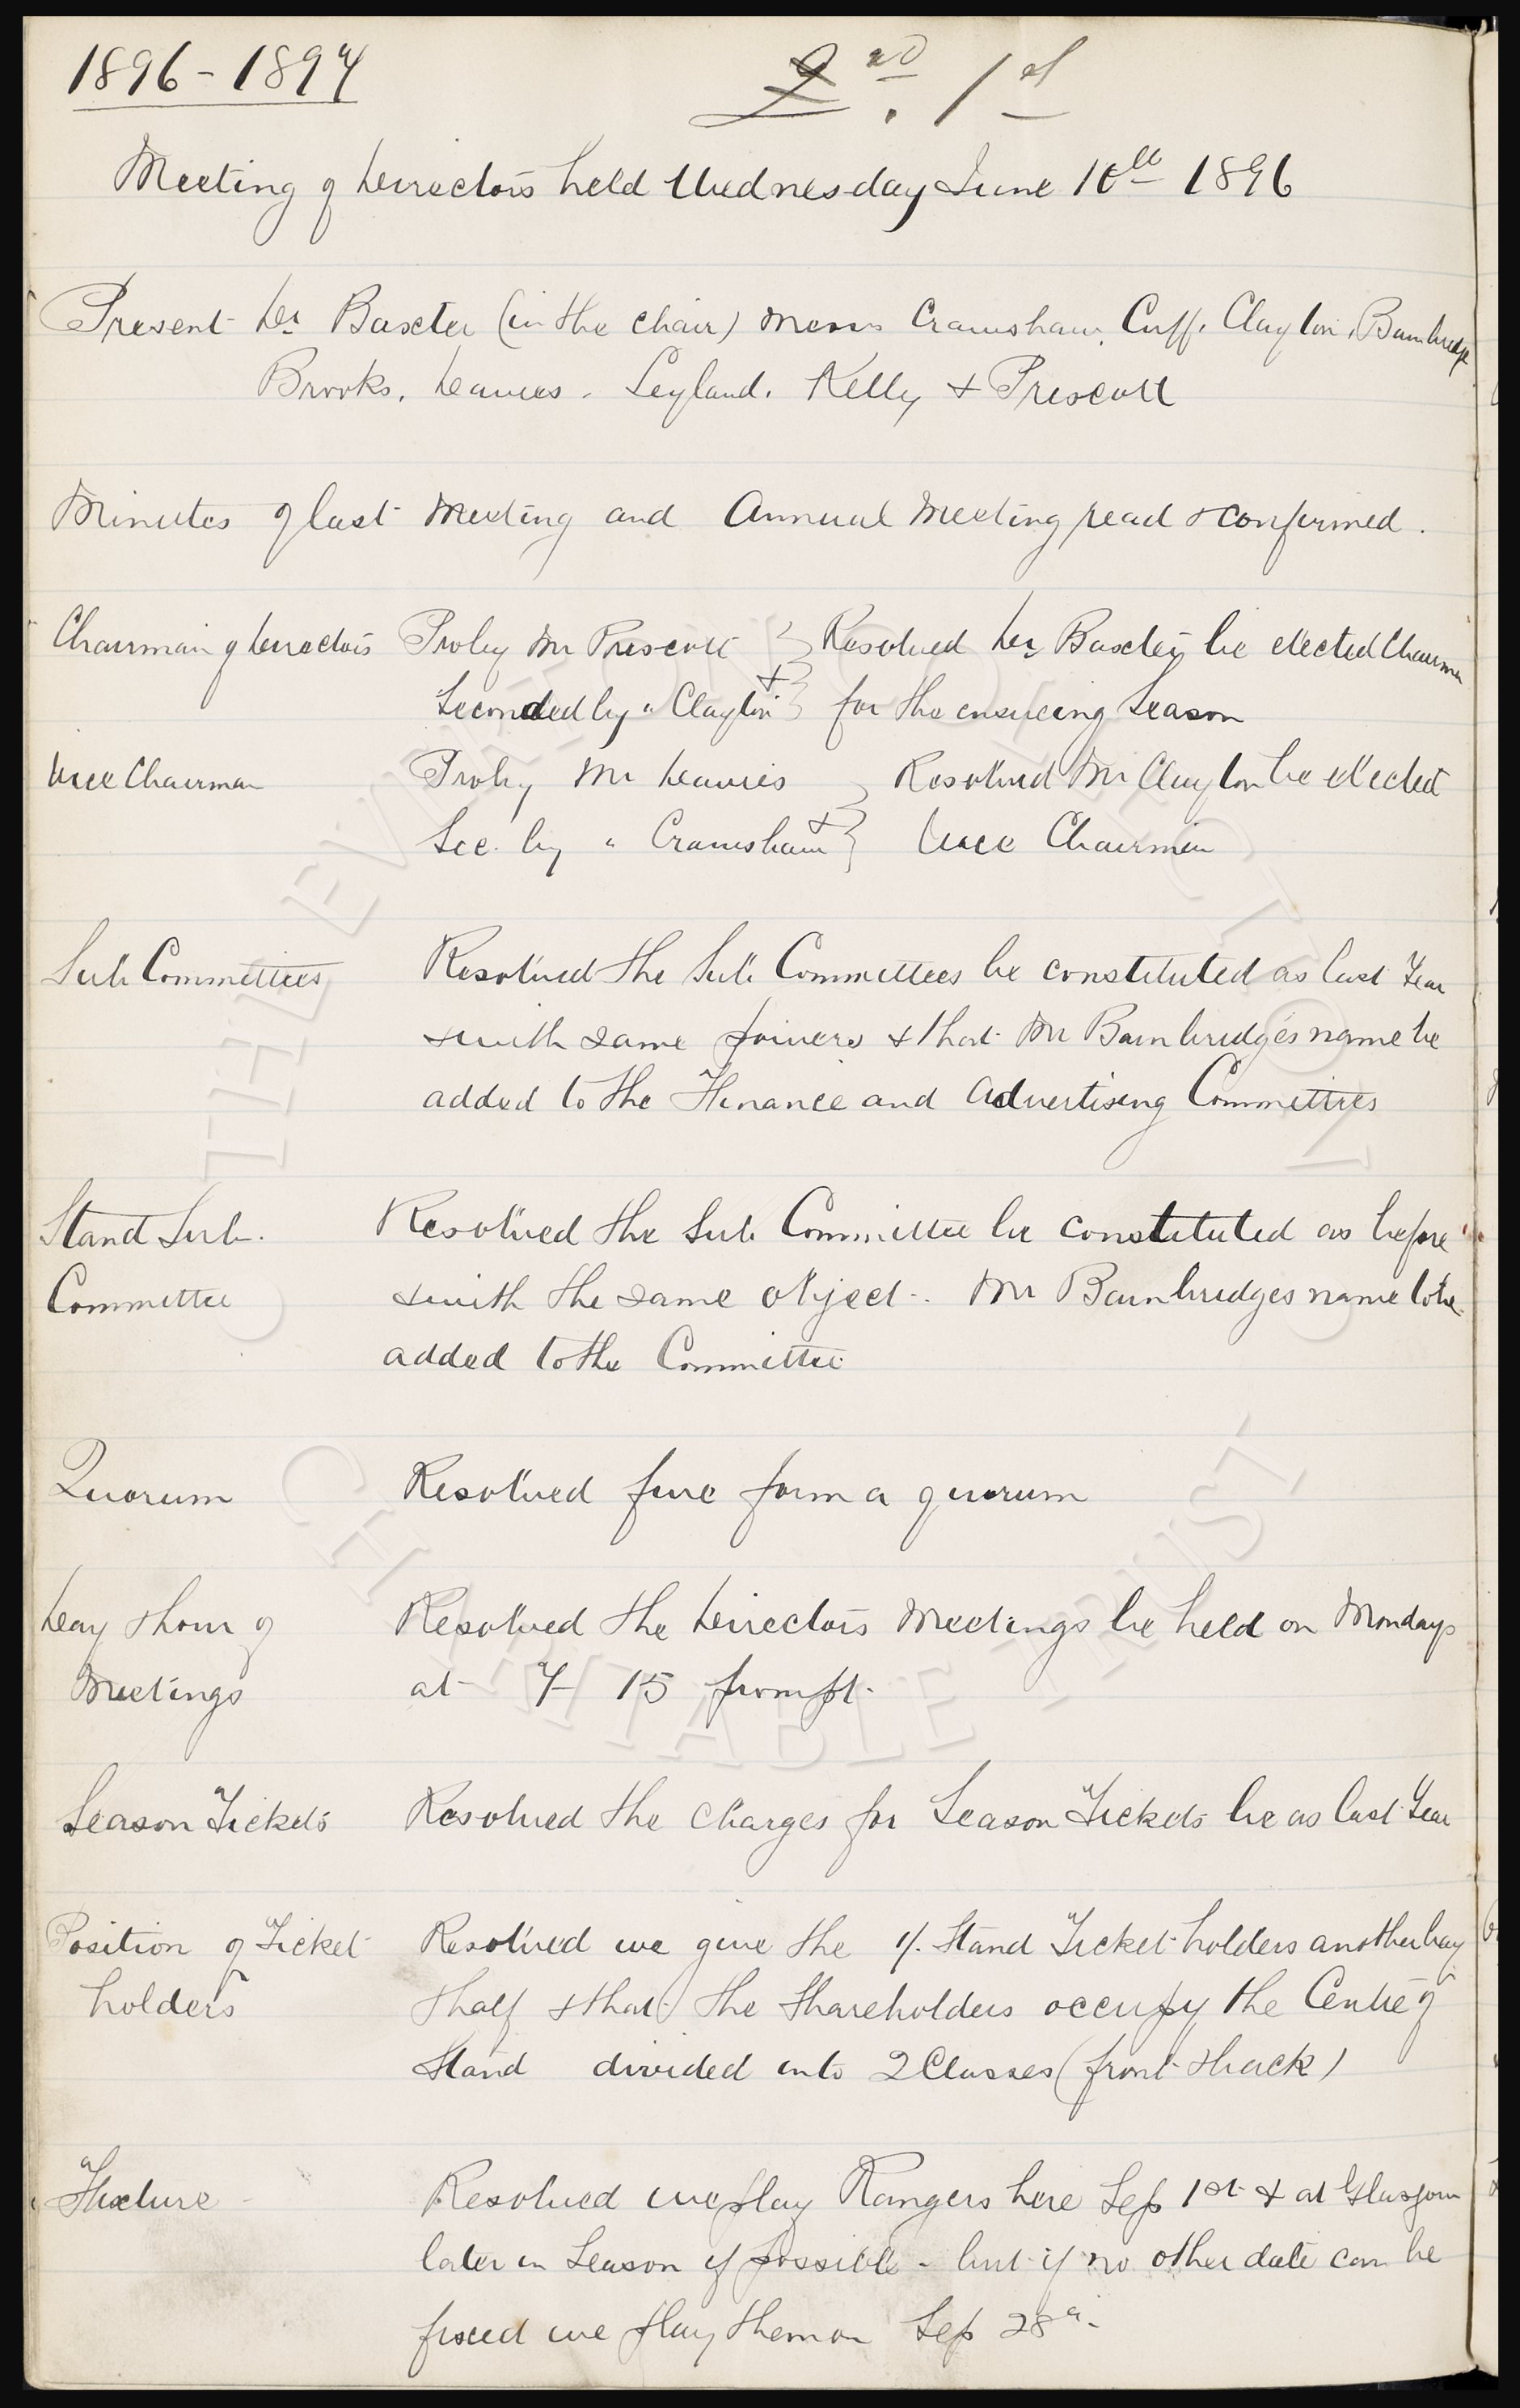 1896-1897
2nd. 1st
Meeting of Directors held Wednesday June 10th 1896
Present Dr Baxter (in the chair) Messrs Crawshaw, Cuff, Clayton, Bainbridge
Brooks, Davies, Leyland, Kelly & Prescott
Minutes of last Meeting and Annual Meeting read & confirmed.
Chairman of Directors Pro by Mr Prescott & } Resolved Dr Baxter be elected Chairman
Seconded by " Clayton } for the ensueing Season
Vice Chairman Pro by Mr Davies & } Resolved Mr Clayton be elected
Sec. by " Crawshaw } Vice Chairman
Sub Committees Resolved the Sub Committees be constituted as last Year
& with same powers & that Mr Bainbridges name be
added to the Finance and Advertising Committees
Stand Sub- Resolved the Sub Committee be constituted as before
Committee & with the same object. Mr Bainbridges name to be
added to the Committee
Quorum Resolved five form a quorum
Day & hour of Resolved the Directors Meetings be held on Mondays
Meetings at 7-15 prompt.
Season Tickets Resolved the charges for Season Tickets be as last Year
Position of Ticket Resolved we give the 1/. Stand Ticket holders another bay
holders & half & that the Shareholders occupy the Centre of
Stand divided into 2 Classes (front & back)
Fixture - Resolved we play Rangers here Sep 1st & at Glasgow
later in Season if possible - but if no other date can be
fixed we play them on Sep 28th-
THE EVERTON COLLECTION
CHARITABLE TRUST